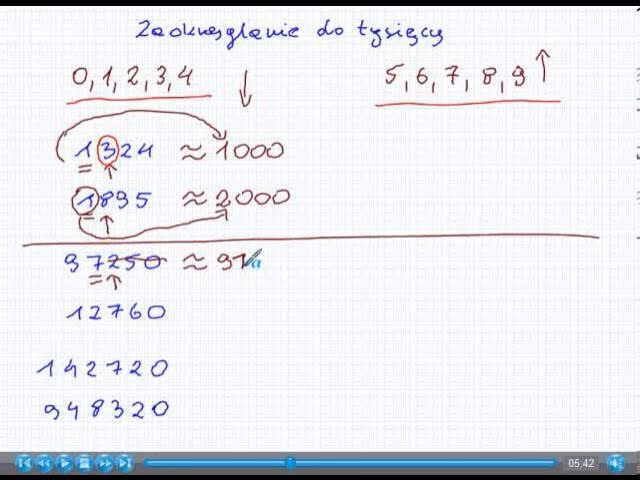 Zaokrąglanie do tysięcy
0, 1, 2, 3, 4 ↓ 5, 6, 7, 8, 9 ↑
1324 ≈ 1000
1895 ≈ 2000
97250 ≈ 97
12760
142720
948320
05:42